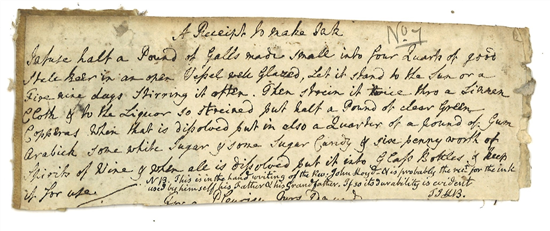 A Receipt to make Ink
No 7
Infuse half a Pound of Galls made small into four Quarts of good
Stale Beer in an open Vessel well Glazed, Let it stand to the Sun or a
Fire nine days Stirring it often. Then strein it twice thro a Linnen
Cloth & to the Liquor so streined put half a Pound of clear Green
Copperas When that is disolved put in also a Quarter of a Pound of Gum
Arabick some white Sugar & some Sugar Candy & six penny work of
Spirits of Wine & when all is disolved put it into Glass Bottles, & keep
it for use
N.B. This is in the hand writing of the Rev. John Lloyd & is probably the rect. for the ink
used by himself, his Father & his Grandfather. If so its durability is evident